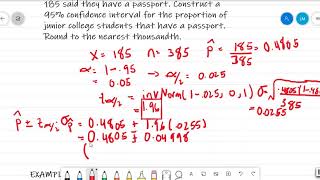 185 said they have a passport. Construct a
95% confidence interval for the proportion of
junior college students that have a passport.
Round to the nearest thousandth.
x = 185 n = 385 p̂ = 185/385 = 0.4805
α = 1-.95 → α/2 = 0.025
= 0.05
zα/2 = invNorm(1-.025, 0, 1) σ √.4805(1-.4805)/385
= 1.96 0.0255
p̂ ± zα/2 σp̂ = 0.4805 ± 1.96(.0255)
= 0.4805 ± 0.04998
(
EXAMPLE